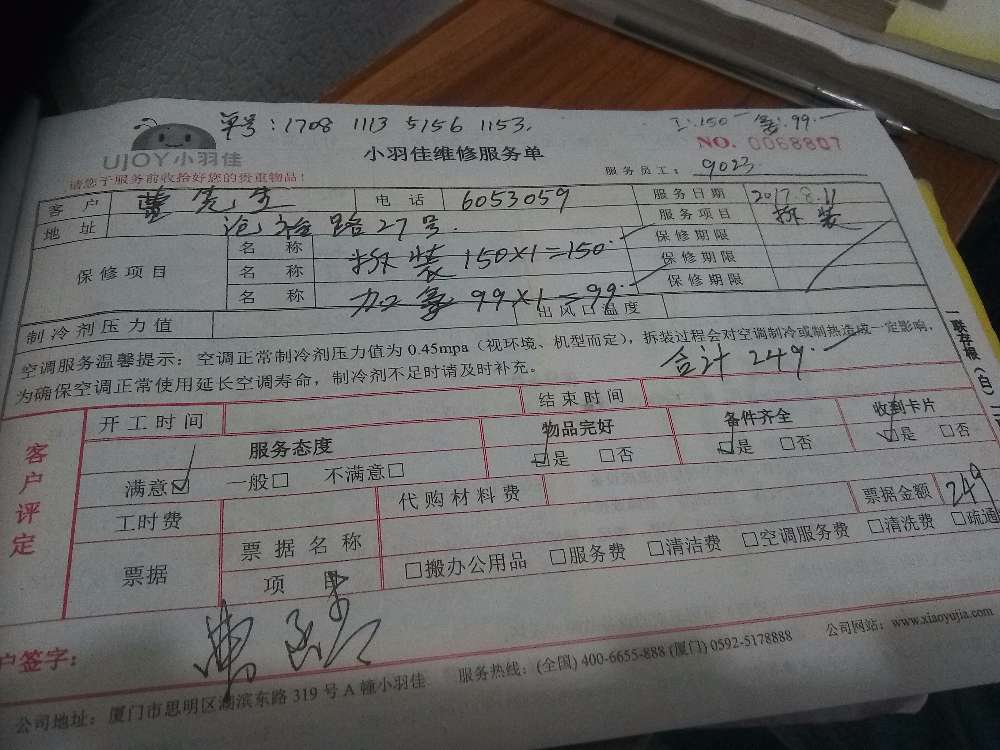 单号: 1708 1113 5156 1153.
工:150 氟:99.
UJOY小羽佳
小羽佳维修服务单
NO. 0068807
请您于服务前收拾好您的贵重物品!
服务员工: 9023
客户 曹先生 电话 6053059 服务日期 2017.8.11
地址 沧裕路27号. 服务项目 拆装
保修项目 名称 拆装 150×1=150. 保修期限
名称 保修期限
名称 加氟 99×1=99. 保修期限
制冷剂压力值 出风口温度
空调服务温馨提示: 空调正常制冷剂压力值为 0.45mpa (视环境、机型而定), 拆装过程会对空调制冷或制热造成一定影响,
为确保空调正常使用延长空调寿命, 制冷剂不足时请及时补充。
合计 249.
一联存根(白)
客户评定
开工时间 结束时间
服务态度 物品完好 备件齐全 收到卡片
满意☑ 一般□ 不满意□ ☑是 □否 ☑是 □否 ☑是 □否
工时费 代购材料费 票据金额 249
票据 票据名称
项目 □搬办公用品 □服务费 □清洁费 □空调服务费 □清洗费 □疏通
户签字:
公司地址: 厦门市思明区湖滨东路 319 号 A 幢小羽佳 服务热线: (全国) 400-6655-888 (厦门) 0592-5178888 公司网站: www.xiaoyujia.com